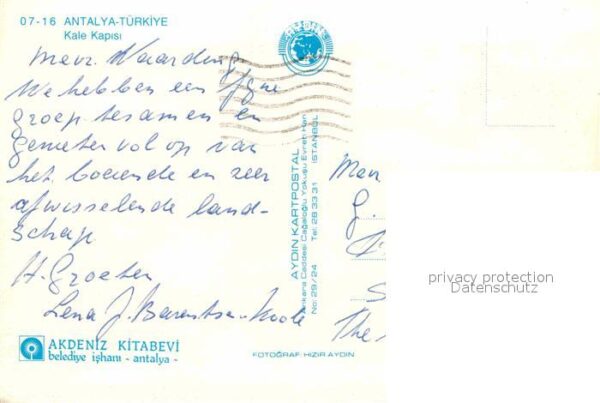 07-16 ANTALYA-TÜRKİYE
Kale Kapısı
Mevr. Naarding
We hebben een fijne
groep te samen en
genieten vol op van
het boeiende en zeer
afwisselende land-
schap
H. Groeten
Lena J. Barentsen-Koole
AKDENİZ KİTABEVİ
belediye işhanı - antalya -
AYDIN KARTPOSTAL
Ankara Caddesi Cağaloğlu Yokuşu Evren Han
No: 29/24 Tel: 28 33 31 İSTANBUL
FOTOĞRAF HIZIR AYDIN
Mevr
G.
The
privacy protection
Datenschutz